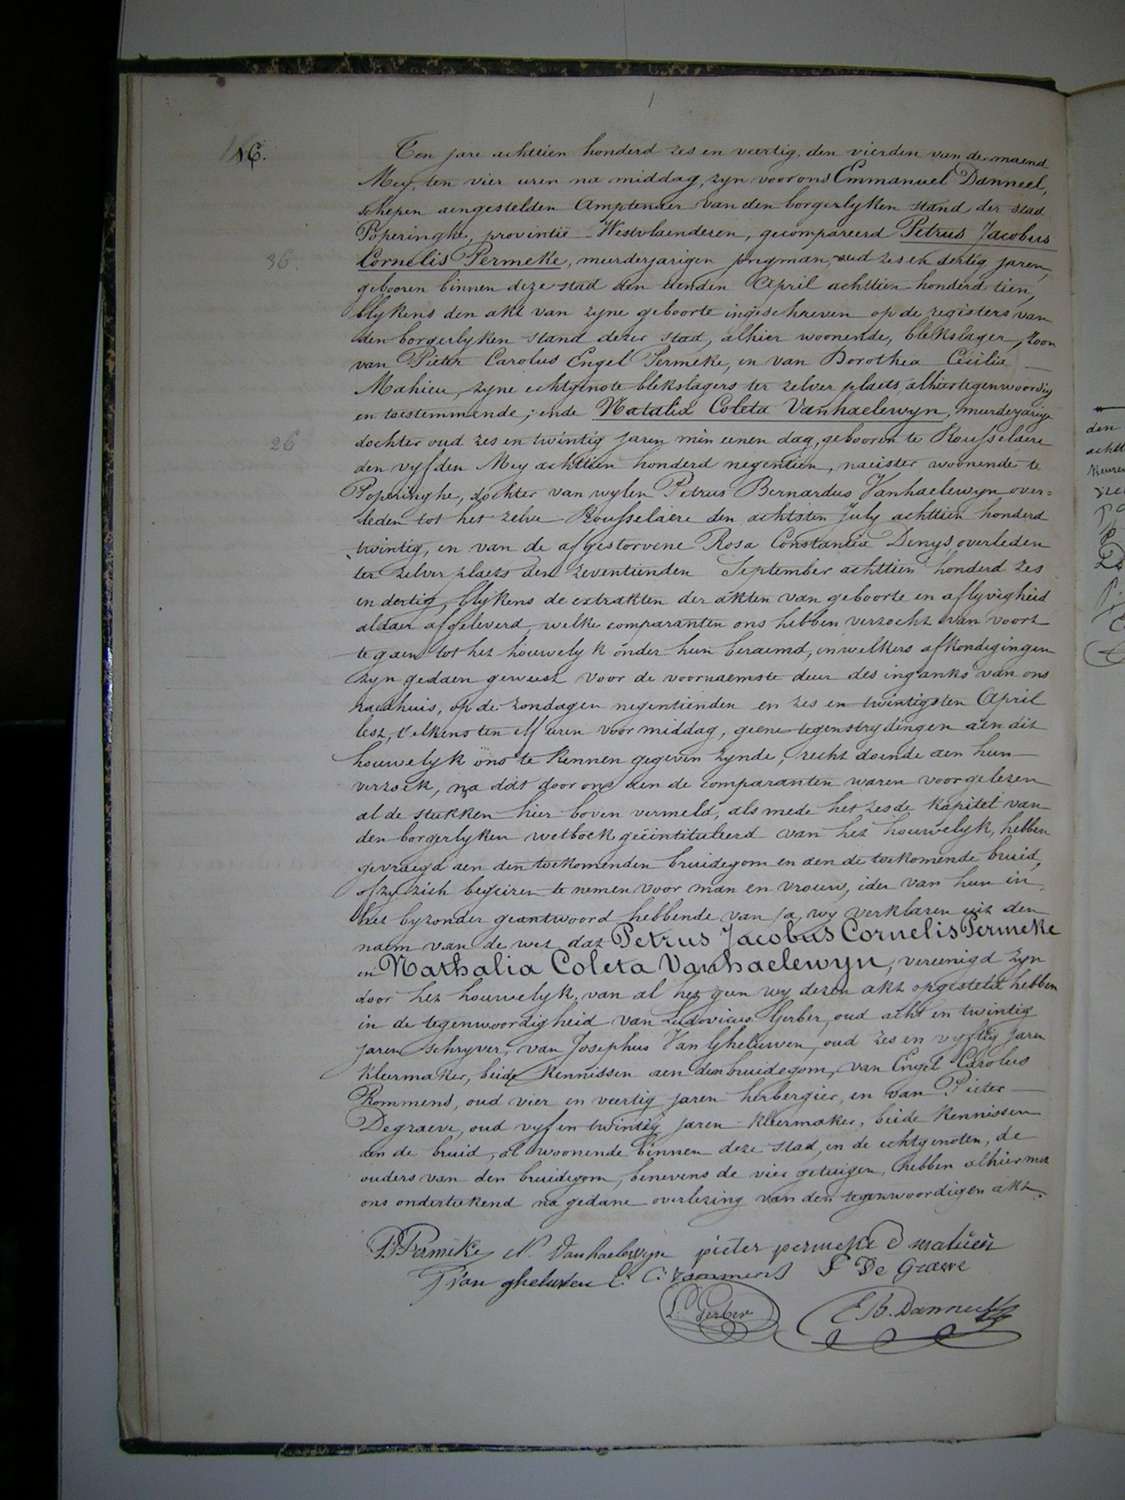 16.
Ten jare achttien honderd zes en veertig, den vierden van de maend
Mey, ten vier uren na middag, zyn voor ons Emmanuel Danneel,
schepen aengestelden Amptenaer van den borgerlyken stand der stad
Poperinghe, provintie Westvlaenderen, gecompareerd Petrus Jacobus
36. Cornelis Permeke, meerderjarigen jongman, oud zes en dertig jaren,
gebooren binnen deze stad den tienden April achttien honderd tien,
blykens den akt van zyne geboorte ingeschreven op de registers van
den borgerlyken stand dezer stad, alhier woonende, blekslager, zoon
van Pieter Carolus Engel Permeke, en van Dorothea Cecilia
Mahieu, zyne echtgenote blekslagers ter zelver plaets, alhier tegenwoordig
en toestemmende; ende Natalia Coleta Vanhaelewyn, meerderjarige
26 dochter oud zes en twintig jaren min eenen dag, gebooren te Rousselaere
den vyfden Mey achttien honderd negentien, naeister woonende te
Poperinghe, dochter van wylen Petrus Bernardus Vanhaelewyn over-
leden tot het zelve Rousselaere den achtsten July achttien honderd
twintig, en van de afgestorvene Rosa Constantia Denys, overleden
ter zelver plaets den zeventienden September achttien honderd zes
en dertig, blykens de extrakten der akten van geboorte en aflyvigheid
aldaer afgeleverd, welke comparanten ons hebben verzocht van voort
te gaen tot het houwelyk onder hun beraemd, en welkers afkondigingen
zyn gedaen geweest voor de voornaemste deur des ingangs van ons
raedhuis, op de zondagen negentienden en zes en twintigsten April
lest, telkens ten elf uren voor middag, geene tegenstrydingen aen dit
houwelyk ons te kennen gegeven zynde, recht doende aen hun
verzoek, na dat door ons aen de comparanten waren voorgelezen
al de stukken hier boven vermeld, als mede het zesde kapitel van
den borgerlyken wetboek geïntituleerd van het houwelyk, hebben
gevraegd aen den toekomenden bruidegom en aen de toekomende bruid,
of zy zich begeiren te nemen voor man en vrouw, ider van hun in
het byzonder geantwoord hebbende van ja, wy verklaren uit den
naem van de wet dat Petrus Jacobus Cornelis Permeke
en Nathalia Coleta Vanhaelewyn, vereenigd zyn
door het houwelyk, van al het geen wy dezen akt opgesteld hebben
in de tegenwoordigheid van Ludovicus Gerber, oud acht en twintig
jaren schryver, van Josephus Van Gheluwen, oud zes en vyftig jaren
kleermaker, beide kennissen aen den bruidegom, van Engel Carolus
Rommens, oud vier en veertig jaren herbergier, en van Pieter
Degraeve, oud vyf en twintig jaren kleermaker, beide kennissen
aen de bruid, al woonende binnen deze stad, en de echtgenoten, de
ouders van den bruidegom, benevens de vier getuigen, hebben alhier met
ons onderteekend na gedane overlezing van den tegenwoordigen akt.
P Permeke N. Vanhaelewyn pieter permeke D mahieu
J van gheluwen E. C. Rommens P De Graeve
L. Gerber E. B. Danneel